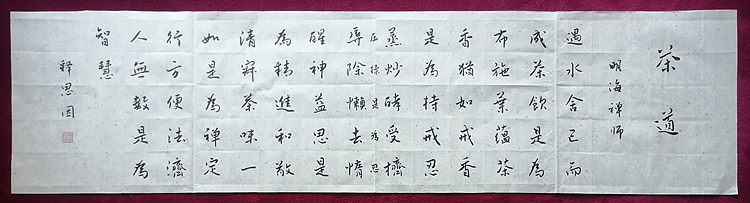 茶道
明海禪師
遇水舍己而
成茶飲是為
布施葉蘊茶
香猶如戒香
是為持戒忍
蒸炒酵受擠
压揉是為忍
辱除懶去惰
醒神益思是
為精進和敬
清寂茶味一
如是為禪定
行方便法濟
人無數是為
智慧
释思因